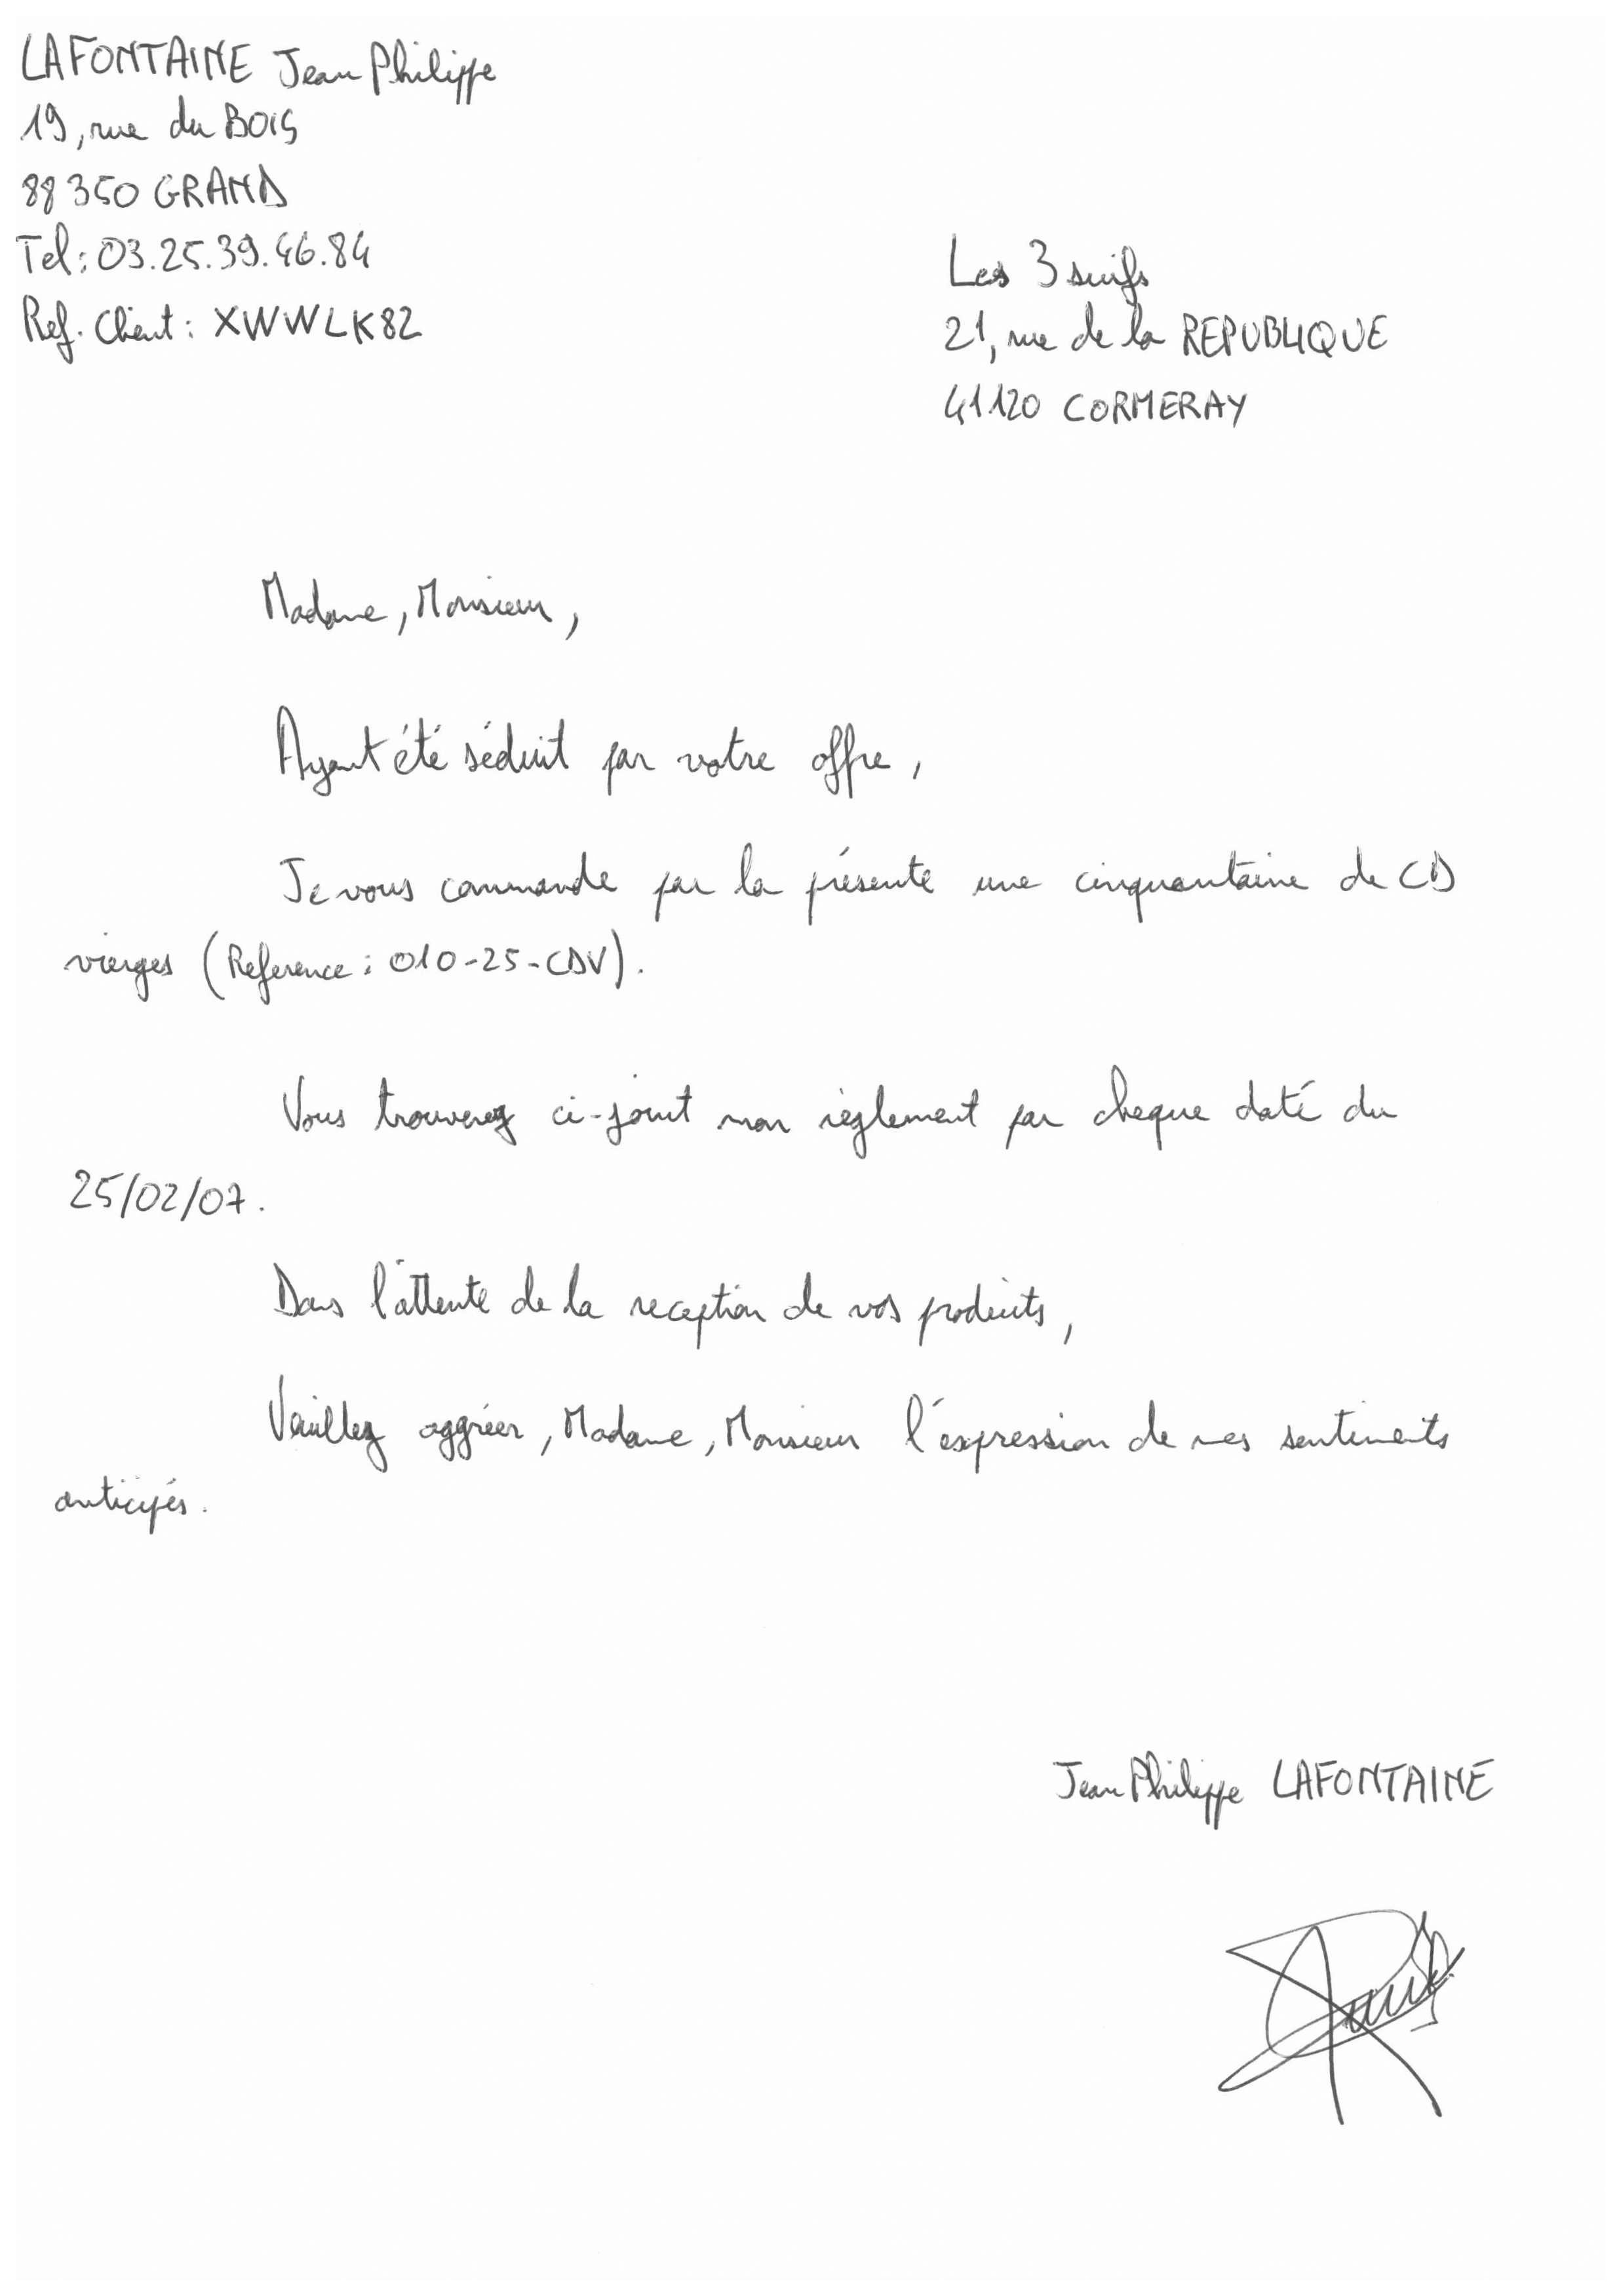 LAFONTAINE Jean Philippe
19, rue du BOIS
88350 GRAND
Tel: 03.25.39.46.84
Ref. Client: XWWLK82
Les 3 suifs
21, rue de la REPUBLIQUE
41120 CORMERAY
Madame, Monsieur,
Ayant été séduit par votre offre,
Je vous commande par la présente une cinquantaine de CD
vierges (Reference: 010-25-CDV).
Vous trouverez ci-joint mon règlement par cheque daté du
25/02/07.
Dans l'attente de la reception de vos produits,
Veuillez aggréer, Madame, Monsieur l'expression de mes sentiments
anticipés.
Jean Philippe LAFONTAINE